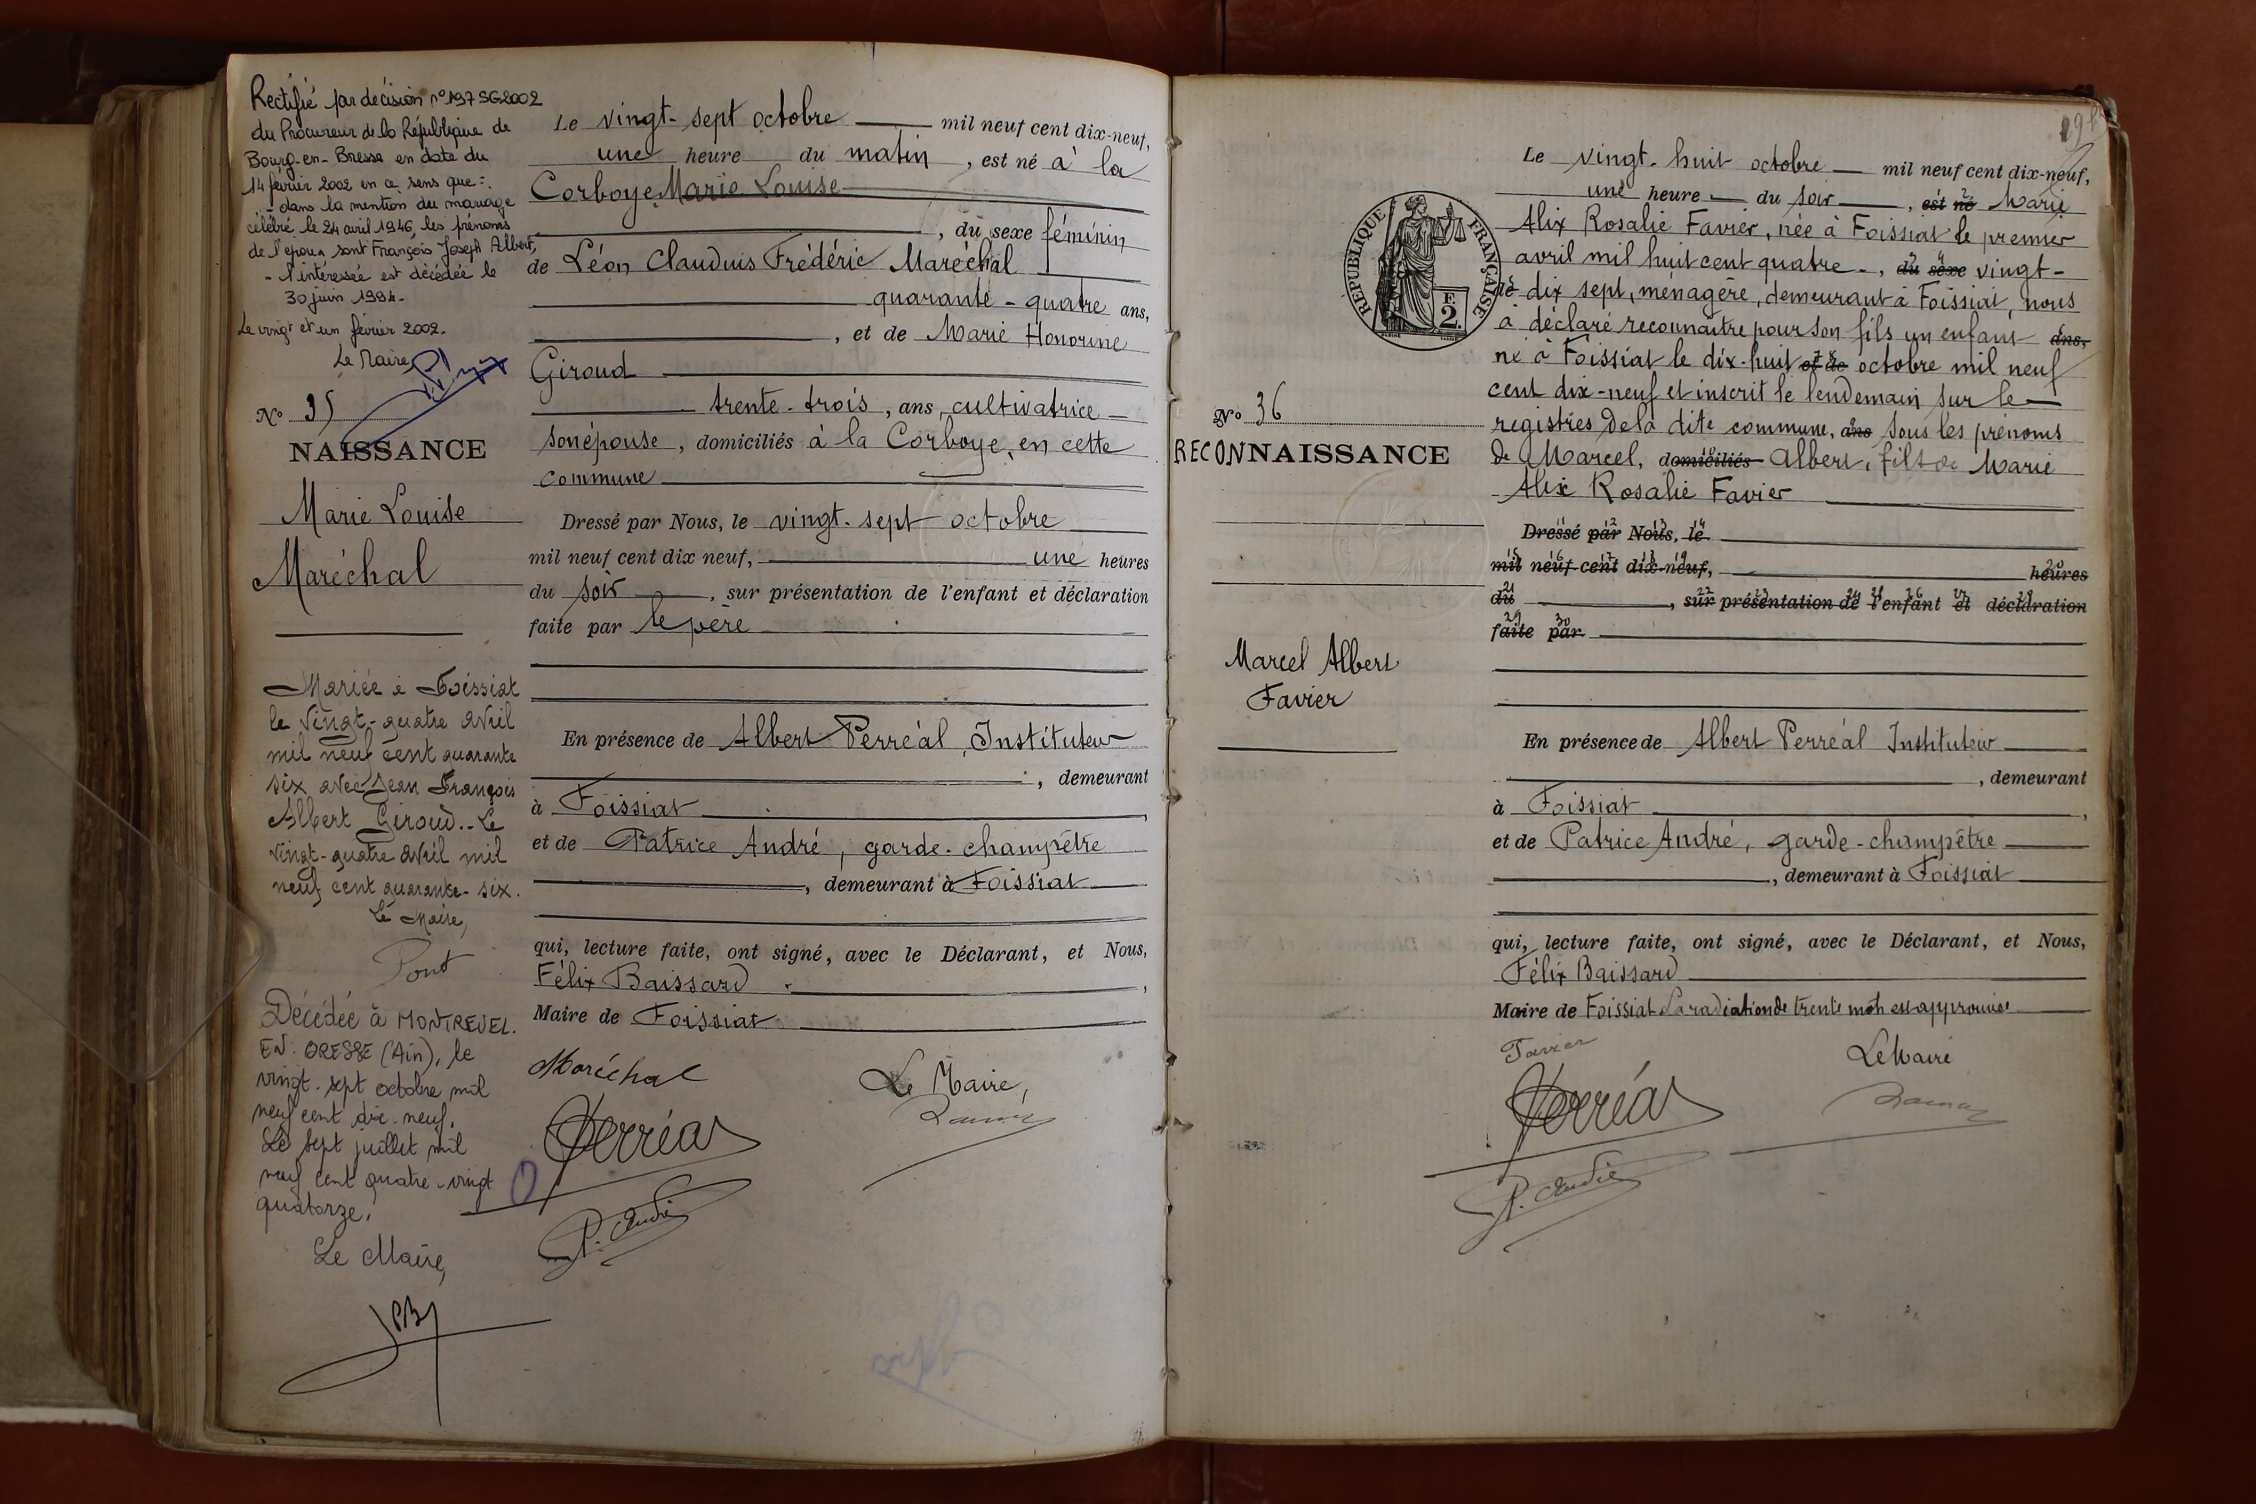 Rectifié par décision n° 197 SG2002
du Procureur de la République de
Bourg-en-Bresse en date du
14 février 2002 en ce sens que :
- dans la mention du mariage
célébré le 24 avril 1946, les prénoms
de l'époux sont François Joseph Albert,
- l'intéressée est décédée le
30 juin 1994.
Le vingt et un février 2002.
Le Maire
No 35
NAISSANCE
Marie Louise
Maréchal
Mariée à Foissiat
le vingt-quatre avril
mil neuf cent quarante
six avec Jean François
Albert Giroud.- Le
vingt-quatre avril mil
neuf cent quarante-six.
Le Maire,
Pont
Décédée à MONTREVEL.
EN. BRESSE (Ain), le
vingt-sept octobre mil
neuf cent dix-neuf.
Le sept juillet mil
neuf cent quatre-vingt
quatorze.
Le Maire,
Le vingt-sept octobre mil neuf cent dix-neuf,
une heure du matin, est né à la
Corboye Marie Louise
, du sexe féminin
de Léon Claudius Frédéric Maréchal
quarante-quatre ans,
, et de Marie Honorine
Giroud
trente-trois, ans, cultivatrice
son épouse, domiciliés à la Corboye, en cette
commune
Dressé par Nous, le vingt-sept octobre
mil neuf cent dix neuf, une heures
du soir, sur présentation de l'enfant et déclaration
faite par le père
En présence de Albert Perréal, Instituteur
, demeurant
à Foissiat
et de Patrice André, garde-champêtre
, demeurant à Foissiat
qui, lecture faite, ont signé, avec le Déclarant, et Nous,
Félix Baissard
Maire de Foissiat
Maréchal
Le Maire,
Perréal
P. André
RÉPUBLIQUE FRANÇAISE
F.
2.
No 36
RECONNAISSANCE
Marcel Albert
Favier
Le vingt-huit octobre mil neuf cent dix-neuf,
une heure du soir, est né Marie
Alix Rosalie Favier, née à Foissiat le premier
avril mil huit cent quatre-, du sexe vingt-
dix sept, ménagère, demeurant à Foissiat, nous
a déclaré reconnaitre pour son fils un enfant ans,
né à Foissiat le dix-huit et de octobre mil neuf
cent dix-neuf et inscrit le lendemain sur le
registres de la dite commune, ans sous les prénoms
de Marcel, domiciliés Albert, fils de Marie
Alix Rosalie Favier
Dressé par Nous, le
mil neuf cent dix-neuf, heures
du, sur présentation de l'enfant et déclaration
faite par
En présence de Albert Perréal Instituteur
, demeurant
à Foissiat
et de Patrice André, garde-champêtre
, demeurant à Foissiat
qui, lecture faite, ont signé, avec le Déclarant, et Nous,
Félix Baissard
Maire de Foissiat La radiation de trente mots est approuvée
Favier
Le Maire
Perréal
P. André